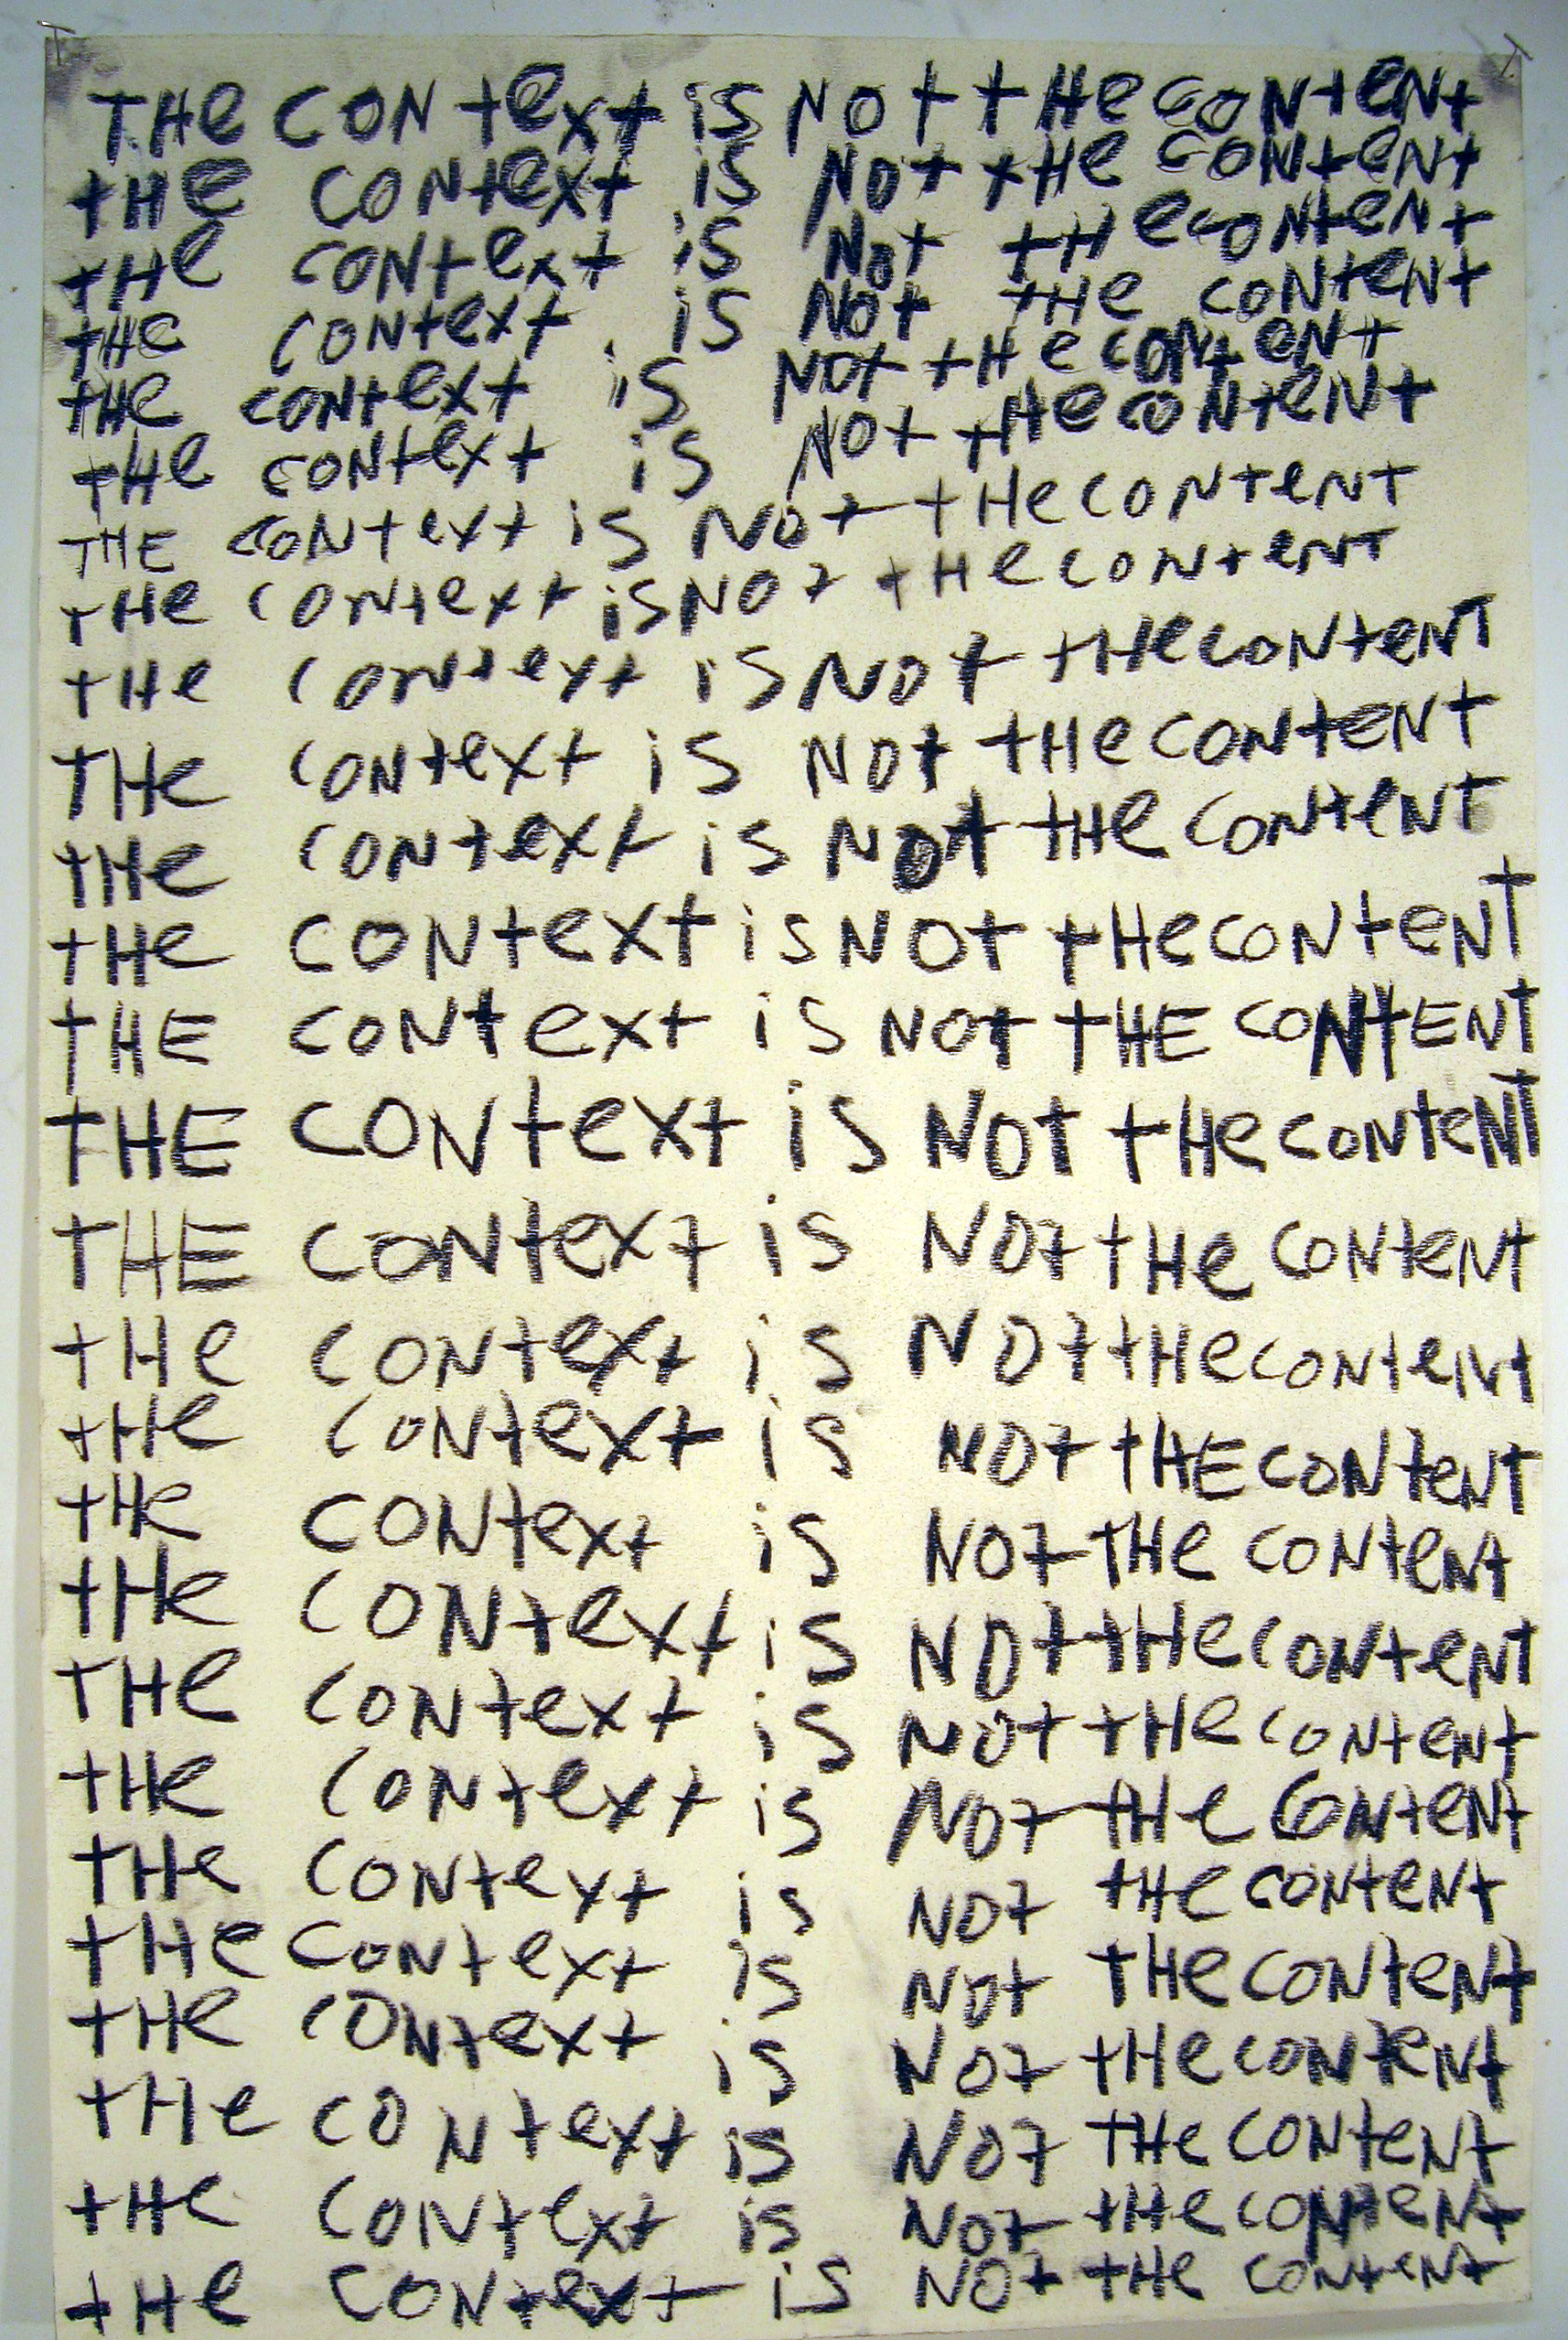 THe CONtext is NOt tHe CONteNt
tHe CONtext is NOt tHe CONteNt
tHe CONtext is NOt tHe CONteNt
tHe CONtext is NOt tHe CONteNt
tHe CONtext is NOt tHe CONteNt
tHe CONtext is NOt tHe CONteNt
THE CONtext is NOt tHe CONteNT
tHe CONtext is NOt tHe CONteNT
tHe CONtext is NOt tHe CONteNT
THe CONtext is NOt tHe CONteNt
tHe CONtext is NOt tHe CONteNt
tHe CONtext is NOt tHe CONteNt
tHE CONtext is NOt tHE CONtENt
THE CONtext is NOt tHe CONteNT
THE CONtext is NOt tHe CONteNt
tHe CONtext is NOt tHe CONteNt
tHe CONtext is NOt tHE CONteNT
tHe CONtext is NOt THe CONteNt
tHe CONtext is NOt tHe CONteNT
tHe CONtext is NOt tHe CONteNt
tHe CONtext is NOt tHe CONteNt
tHe CONtext is NOt tHe CONteNt
tHe CONtext is NOt tHe CONteNt
tHe CONtext is NOt tHe CONteNt
tHe CONtext is NOt THe CONteNt
tHe CONtext is NOt tHe CONteNt
tHe CONtext is NOt tHe CONteNt